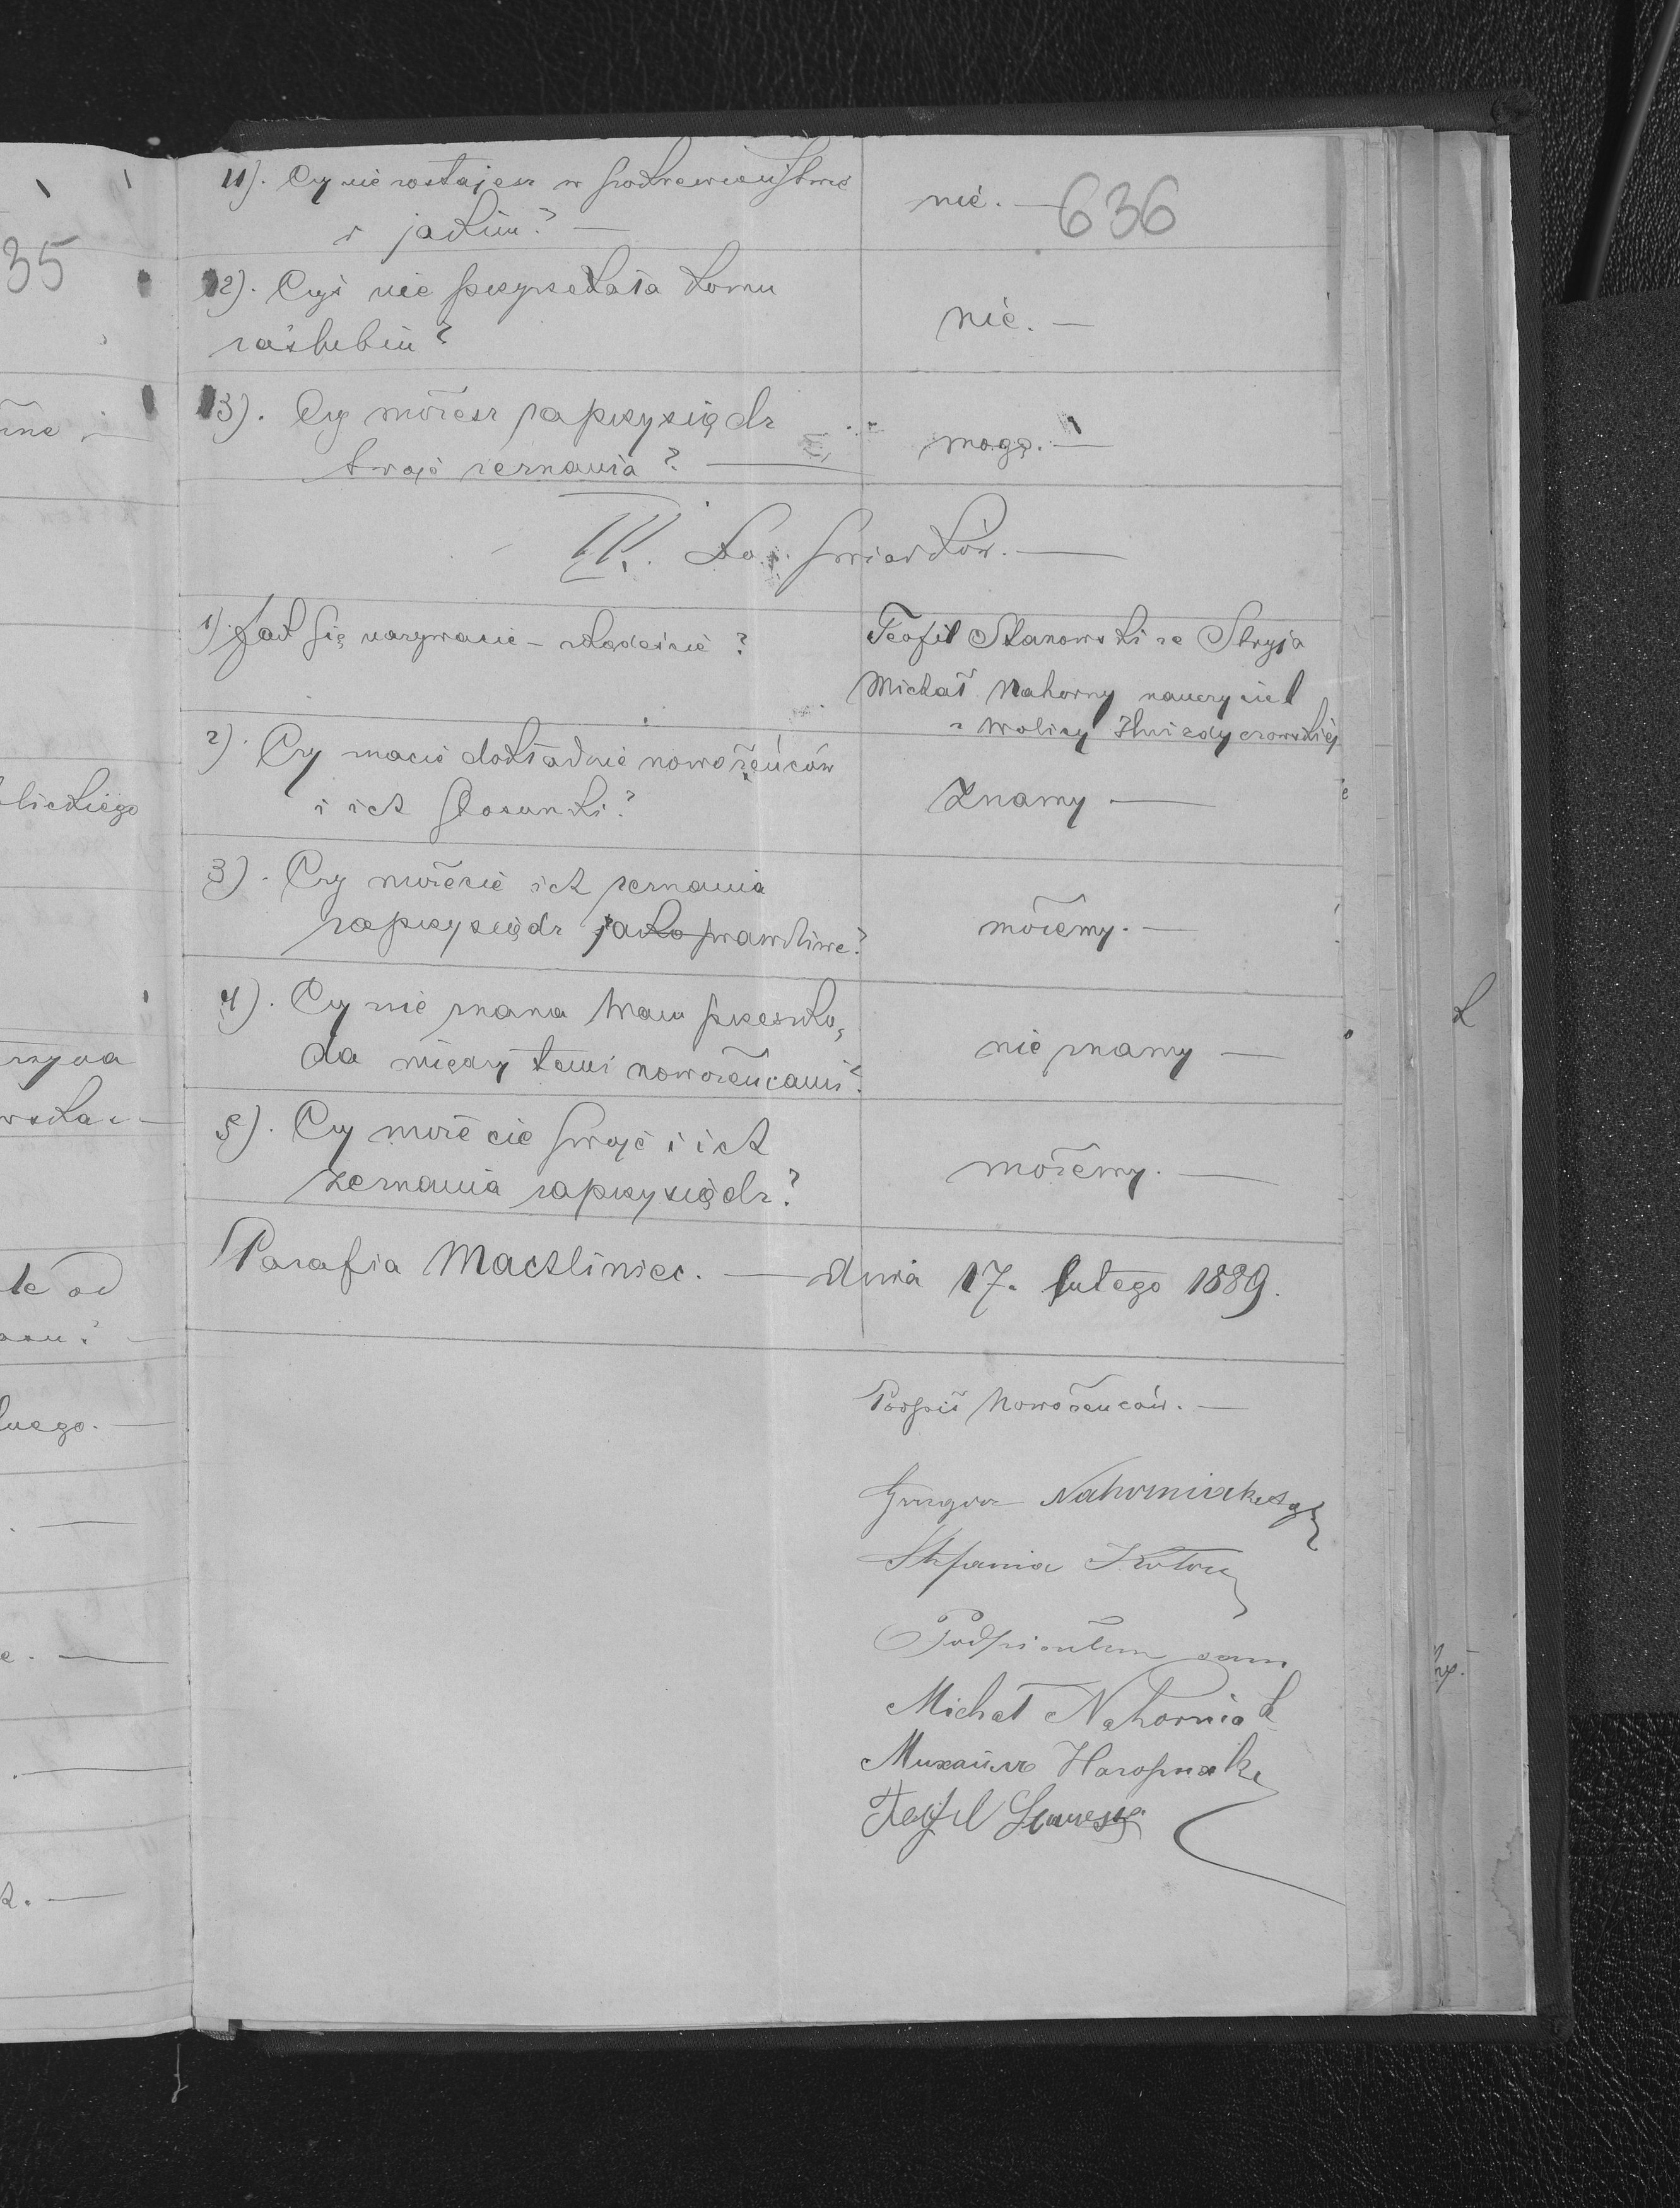 35
636
11). Czy nie zostajesz w pokrewieństwie nie. —
z jakim? —
12). Czyś nie przyrzekała komu
zaślubin? nie. —
13). Czy możesz zaprzysiądz
twoje zeznania? — mogę. —
III. Do świadków. —
1). Jak się nazywacie – zkądeście? Teofil Stanowski ze Stryja
Michał Nahorny nauczyciel
z Wolicy Hnizdyczowskiéj
2). Czy znacie dokładnie nowożeńców
i ich stosunki? Znamy —
3). Czy możecie ich zeznania
zaprzysiądz jako prawdziwe? możemy. —
4). Czy nie znana Wam przeszko,
da między temi nowożeńcami? nie znamy —
5). Czy możecie swoje i ich
zeznania zaprzysiądz? możemy. —
Parafia Machliniec. — dnia 17. lutego 1889.
Podpis Nowożeńców. —
Stefania
Podpisałem
Michał Nahorniak
Михаилъ
Teofil
lickiego
te od